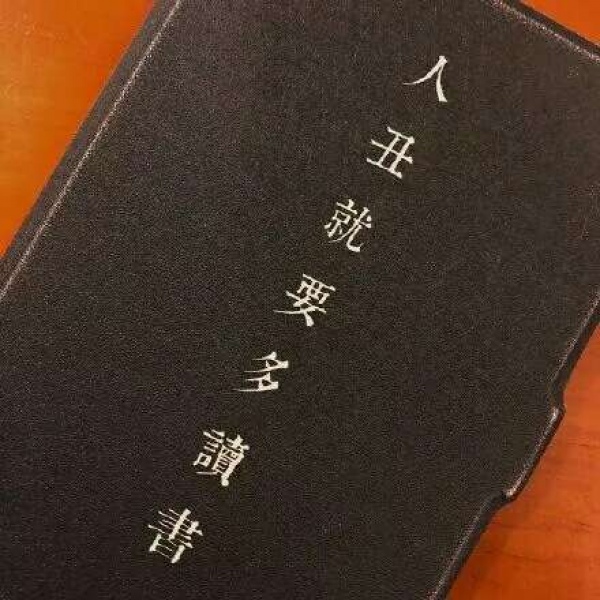 人丑就要多讀書